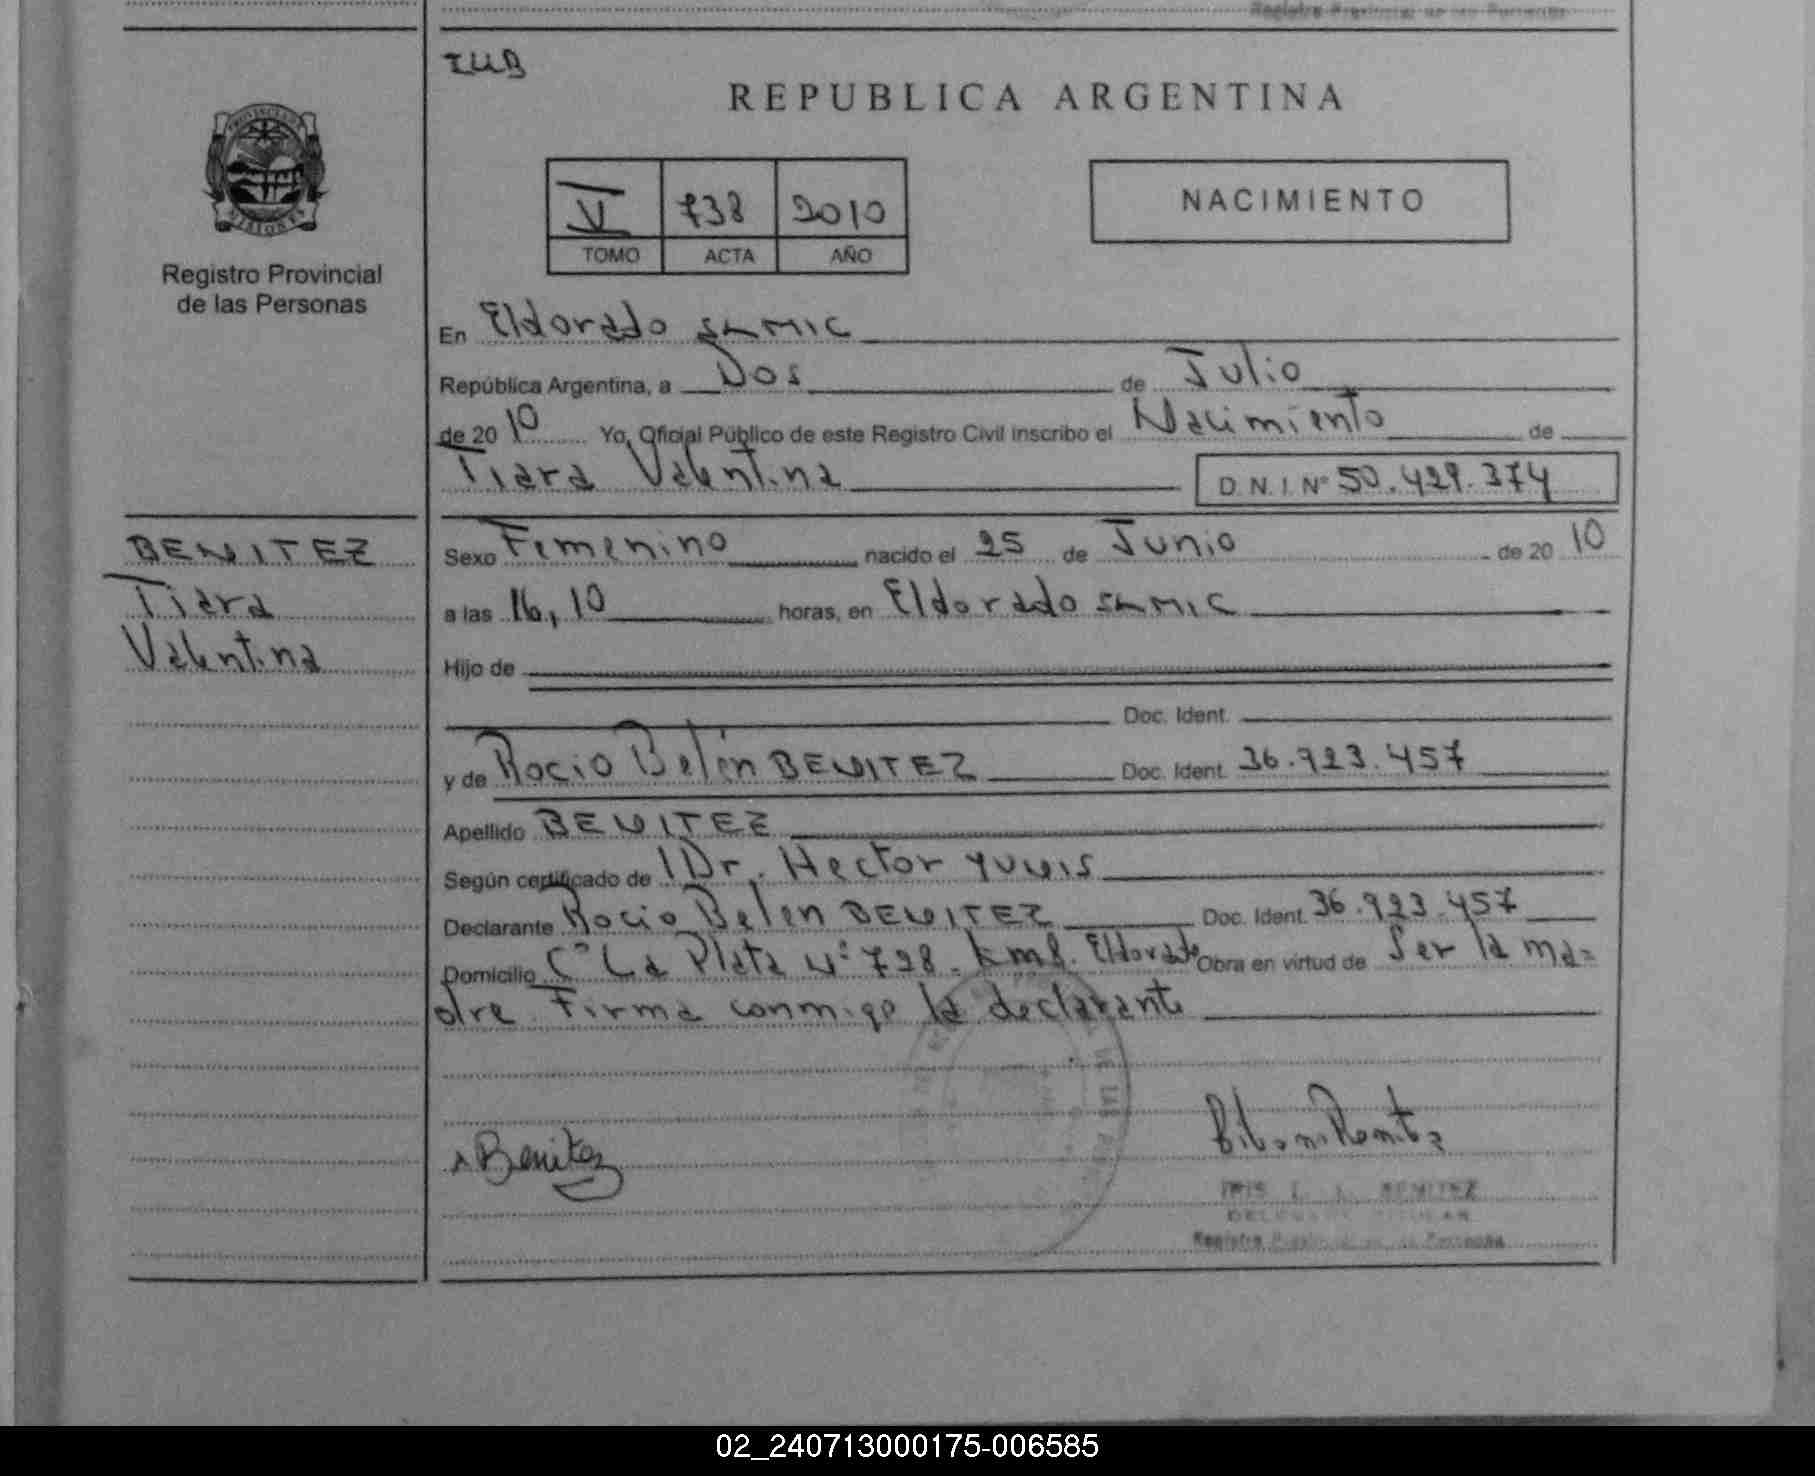 IUB
REPUBLICA ARGENTINA
PROVINCIA DE MISIONES
Registro Provincial
de las Personas
V 738 2010
TOMO ACTA AÑO
NACIMIENTO
En Eldorado SAMIC
República Argentina, a Dos de Julio
de 2010 Yo, Oficial Público de este Registro Civil inscribo el Nacimiento de
Tiara Valentina D.N.I. Nº 50.429.374
BENITEZ
Tiara
Valentina
Sexo Femenino nacido el 25 de Junio de 2010
a las 16,10 horas, en Eldorado SAMIC
Hijo de
Doc. Ident.
y de Rocio Belén BENITEZ Doc. Ident. 36.923.457
Apellido BENITEZ
Según certificado de Dr. Hector YUNIS
Declarante Rocio Belen BENITEZ Doc. Ident. 36.923.457
Domicilio Cº La Plata Nº 728. Km8. Eldorado Obra en virtud de Ser la ma=
dre. Firma conmigo la declarante
Benitez
BENITEZ
Registro Provincial de las Personas
02_240713000175-006585